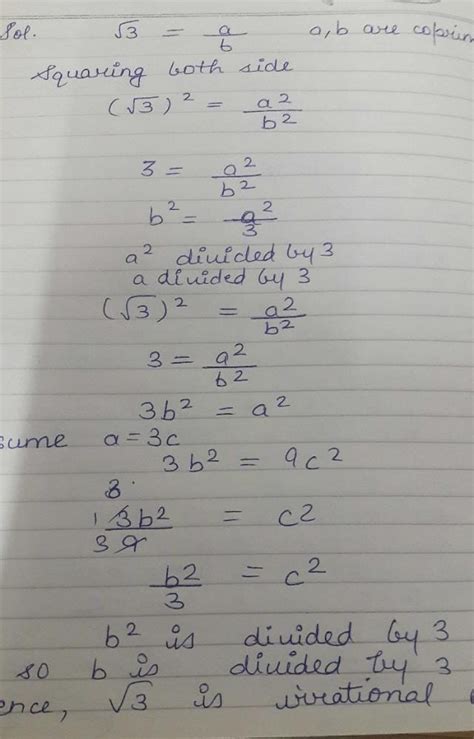 Sol. √3 = a/b a, b are coprim
Squaring both side
(√3)² = a²/b²
3 = a²/b²
b² = a²/3
a² divided by 3
a divided by 3
(√3)² = a²/b²
3 = a²/b²
3b² = a²
sume a = 3c
3b² = 9c²
3
1 3b²/3 9 = c2
b2/3 = c²
b² is divided by 3
so b is divided by 3
ence, √3 is irrational